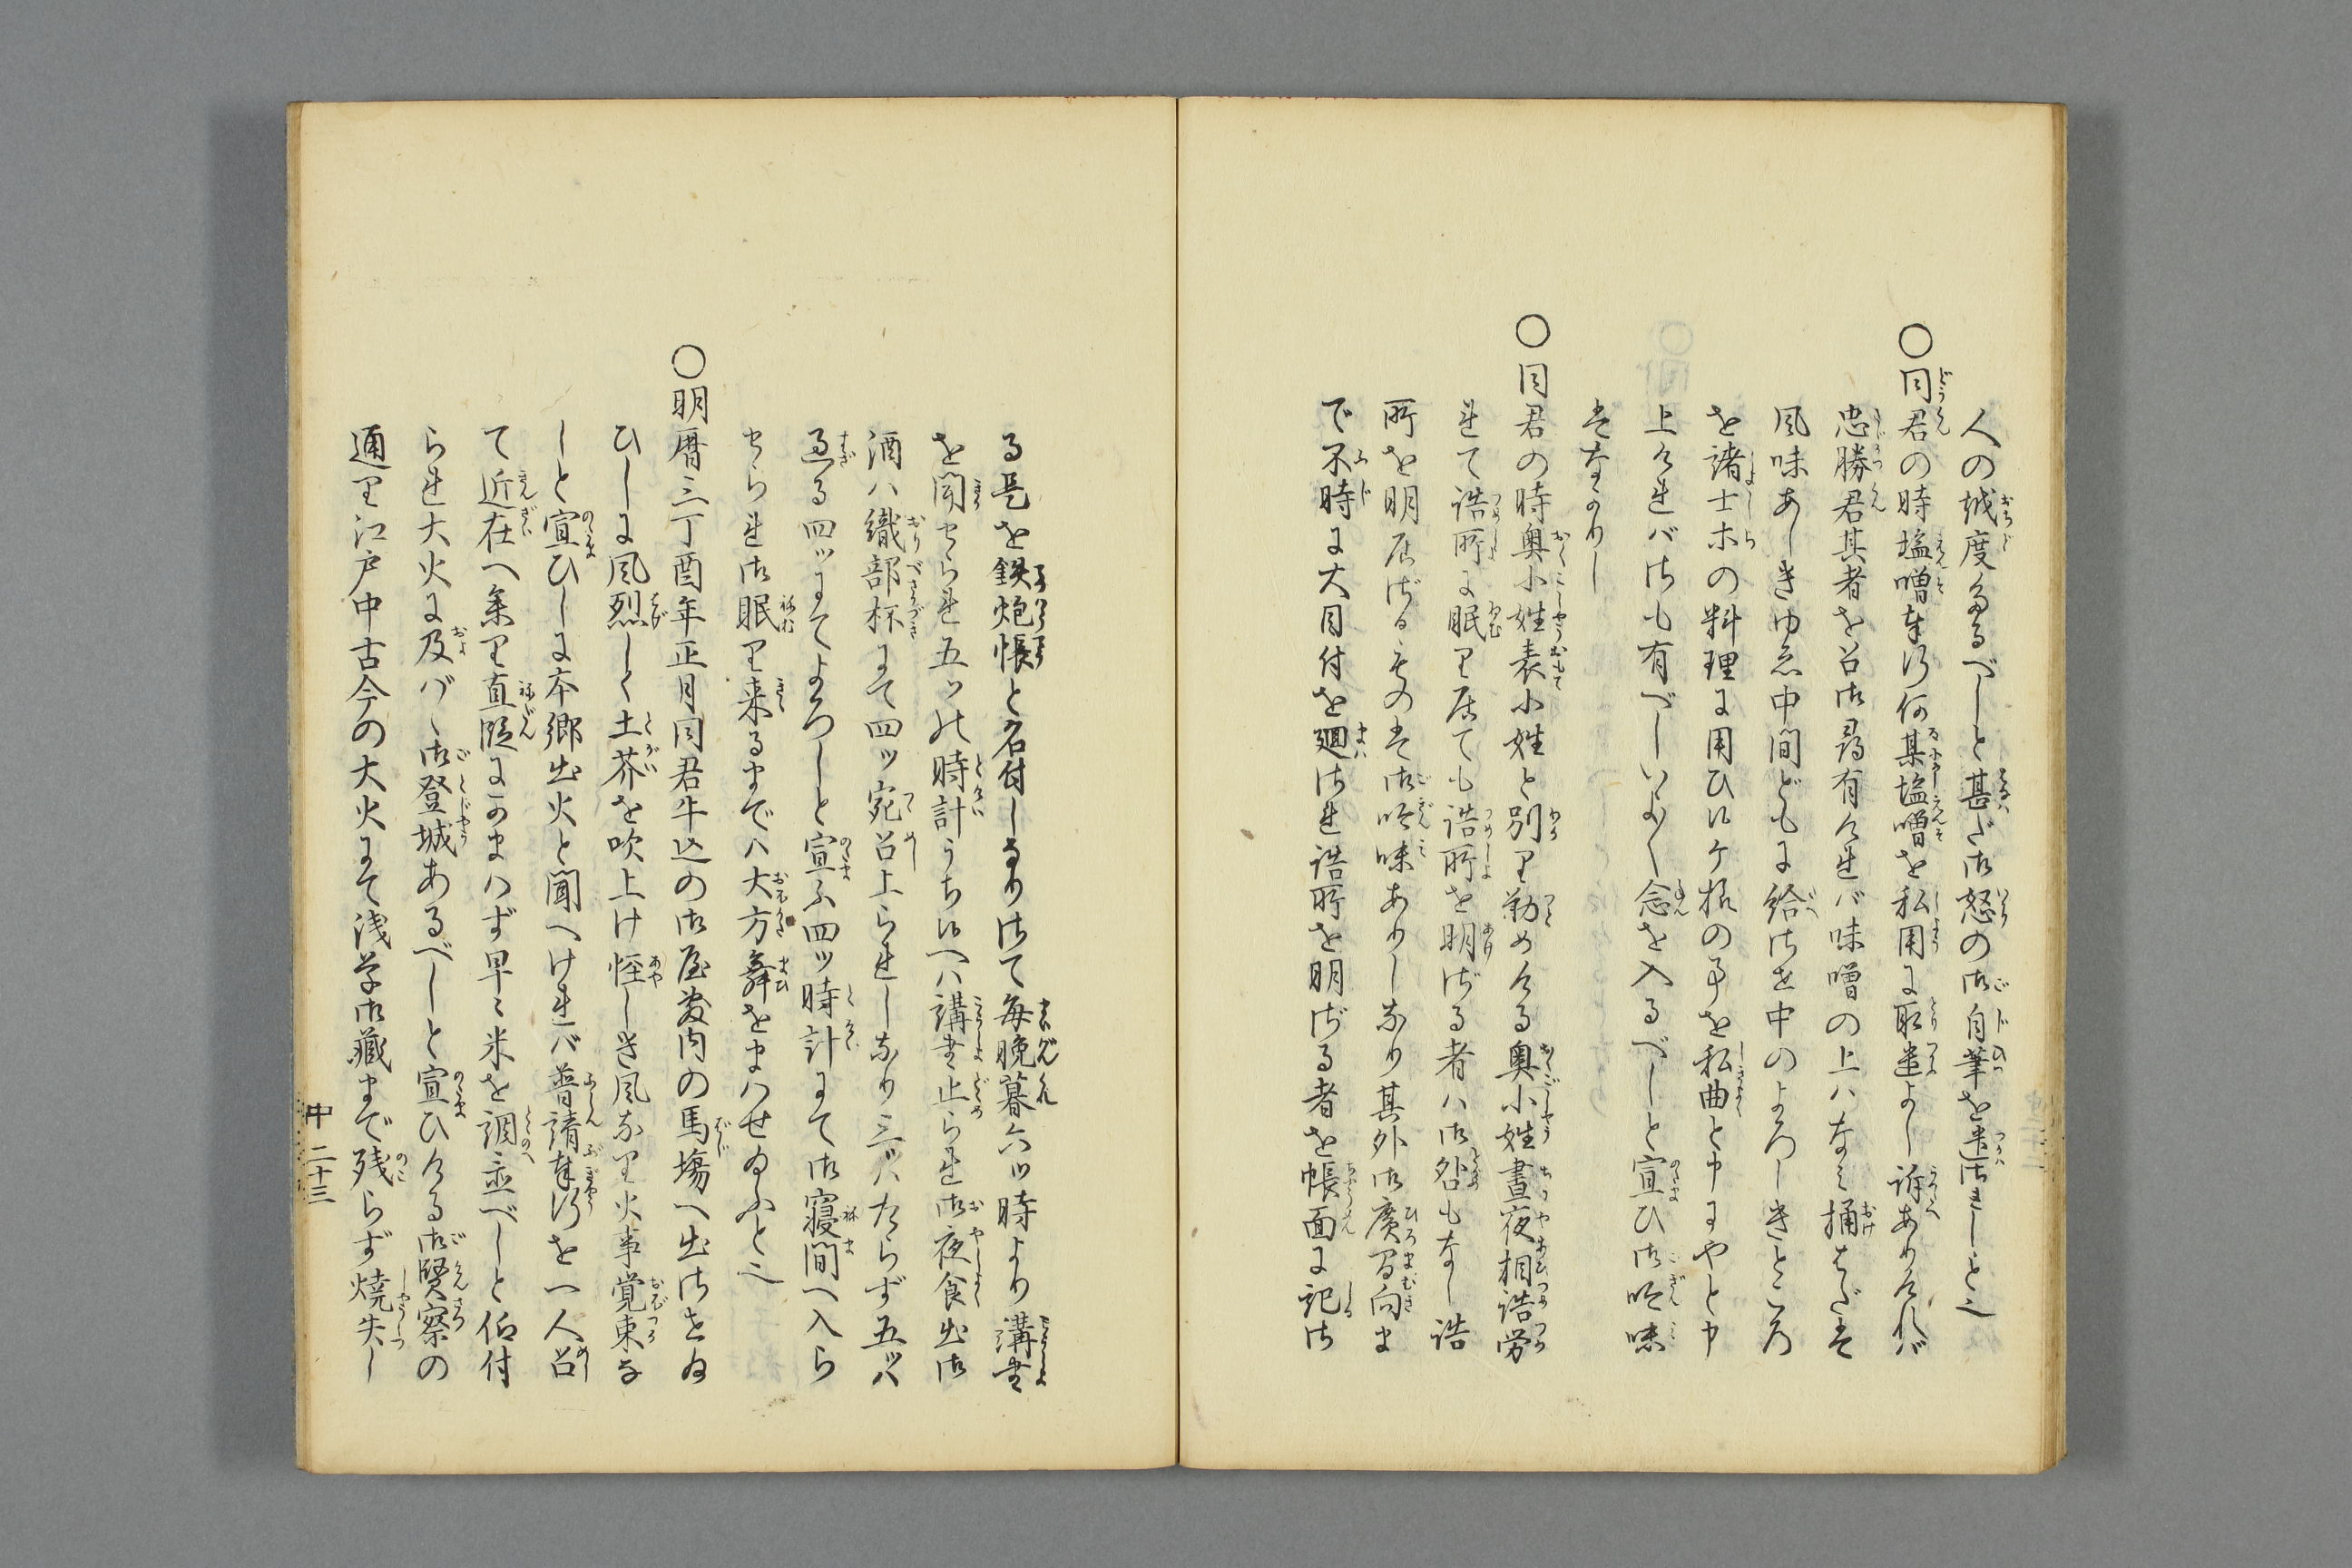 人の越度たるべしと甚だ御怒の御自筆を遣はされしと也
〇同君の時塩噌奉行何某塩噌を私用に取遣よし訴ありけれバ
忠勝君其者を召御尋有けれバ味噌の上ハなミ桶はだと
風味あしきゆゑ中間どもに給はせ中のよろしきところ
を諸士ホの料理に用ひ候ケ様の事を私曲と申にやと申
上けれバさも有べしいよ〱念を入るべしと宣ひ御吟味
はなかりし
〇同君の時奥小姓表小姓と別り勤めける奥小姓昼夜相詰労
れて詰所に眠り居ても詰所を明ざる者ハ御咎もなし詰
所を明居ざるものは御吟味ありしなり其外御廣間向ま
で不時に大目付を廻され詰所を明ざる者を帳面に記さ
る是を鉄炮帳と名付しなりさて毎晩暮六ッ時より講書
を聞せられ五ッの時計うち候へハ講書止られ御夜食出御
酒ハ織部杯にて四ッ宛召上られしなり三ッハたらず五ッハ
過る四ッにてよろしと宣ふ四ッ時計にて御寝間へ入ら
せられ御眠り来るまでハ大方舞をまはせ給ふと也
〇明暦三丁酉年正月同君牛込の御屋敷内の馬場へ出させ給
ひしに風烈しく土芥を吹上け怪しき風なり火事覚束な
しと宣ひしに本郷出火と聞へけれバ普請奉行を一人召
て近在へ参り直段にかまはず早々米を調並べしと仰付
られ大火に及バヽ御登城あるべしと宣ひける御賢察の
通り江戸中古今の大火にて浅草御蔵まで残らず焼失し
中 二十三